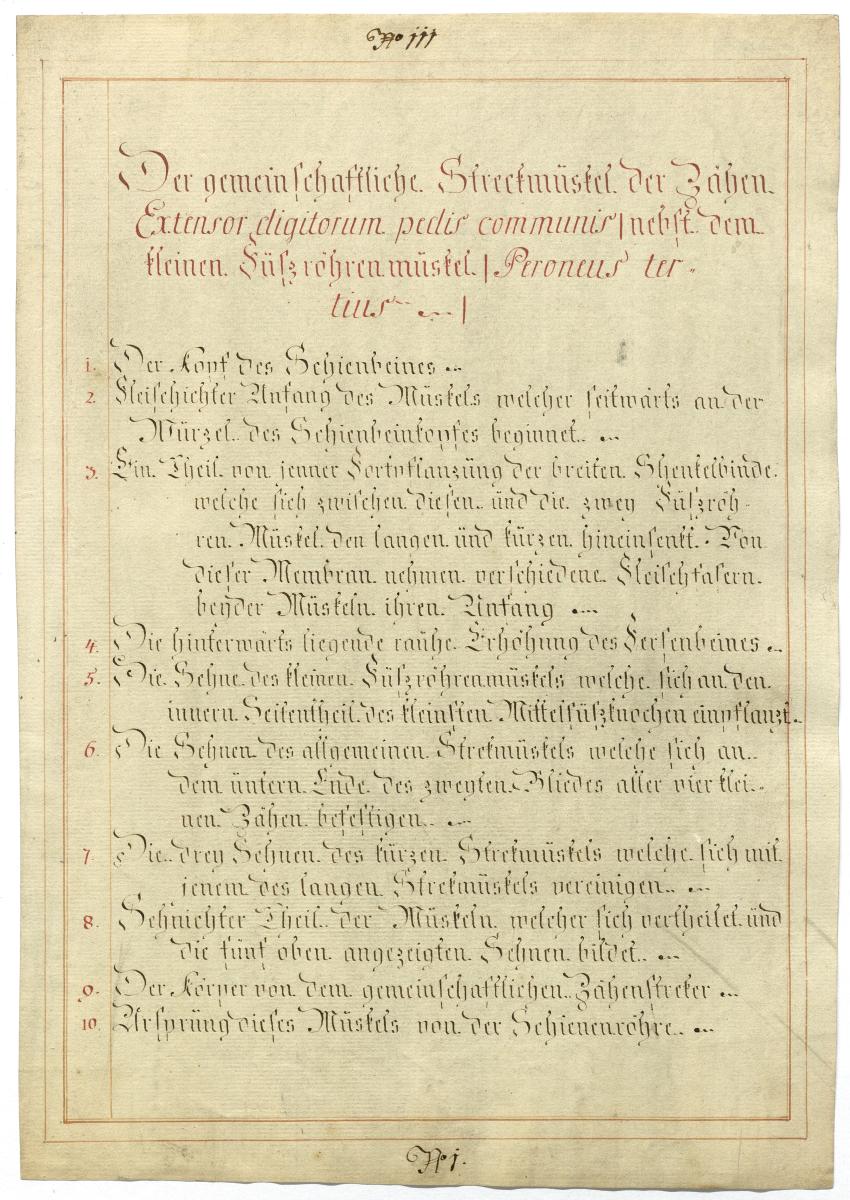 No III
Der gemeinschaftliche Streckmüskel der Zähen
Extensor digitorum pedis communis | nebst dem
kleinen Füszröhrenmüskel | Peroneus ter-
tius |
1. Der Kopf des Schienbeines
2. Fleischichter Anfang des Müskels welcher seitwärts an der
Würzel des Schienbeinkopfes beginnet
3. Ein Theil von jenner Fortpflanzüng der breiten Shenkelbinde
welche sich zwischen diesen und die zwey Füszröh-
ren Müskel den langen und kürzen hineinsenkt. Von
dieser Membran nehmen verschiedene Fleischfasern
beyder Müskeln ihren Anfang
4. Die hinterwärts liegende raühe Erhöhung des Fersenbeines
5. Die Sehne des kleinen Füszröhrenmüskels welche sich an den
innern Seitentheil des kleinsten Mittelfüszknochen einpflanzt
6. Die Sehnen des allgemeinen Strekmüskels welche sich an
dem üntern Ende des zweyten Gliedes aller vier klei-
nen Zähen befestigen
7. Die drey Sehnen des kürzen Strekmüskels welche sich mit
jenem des langen Strekmüskels vereinigen
8. Sehnichter Theil der Müskeln welcher sich vertheilet und
die fünf oben angezeigten Sehnen bildet
9. Der Körper von dem gemeinschaftlichen Zähenstreker
10. Ursprüng dieses Müskels von der Schienenröhre
No j.